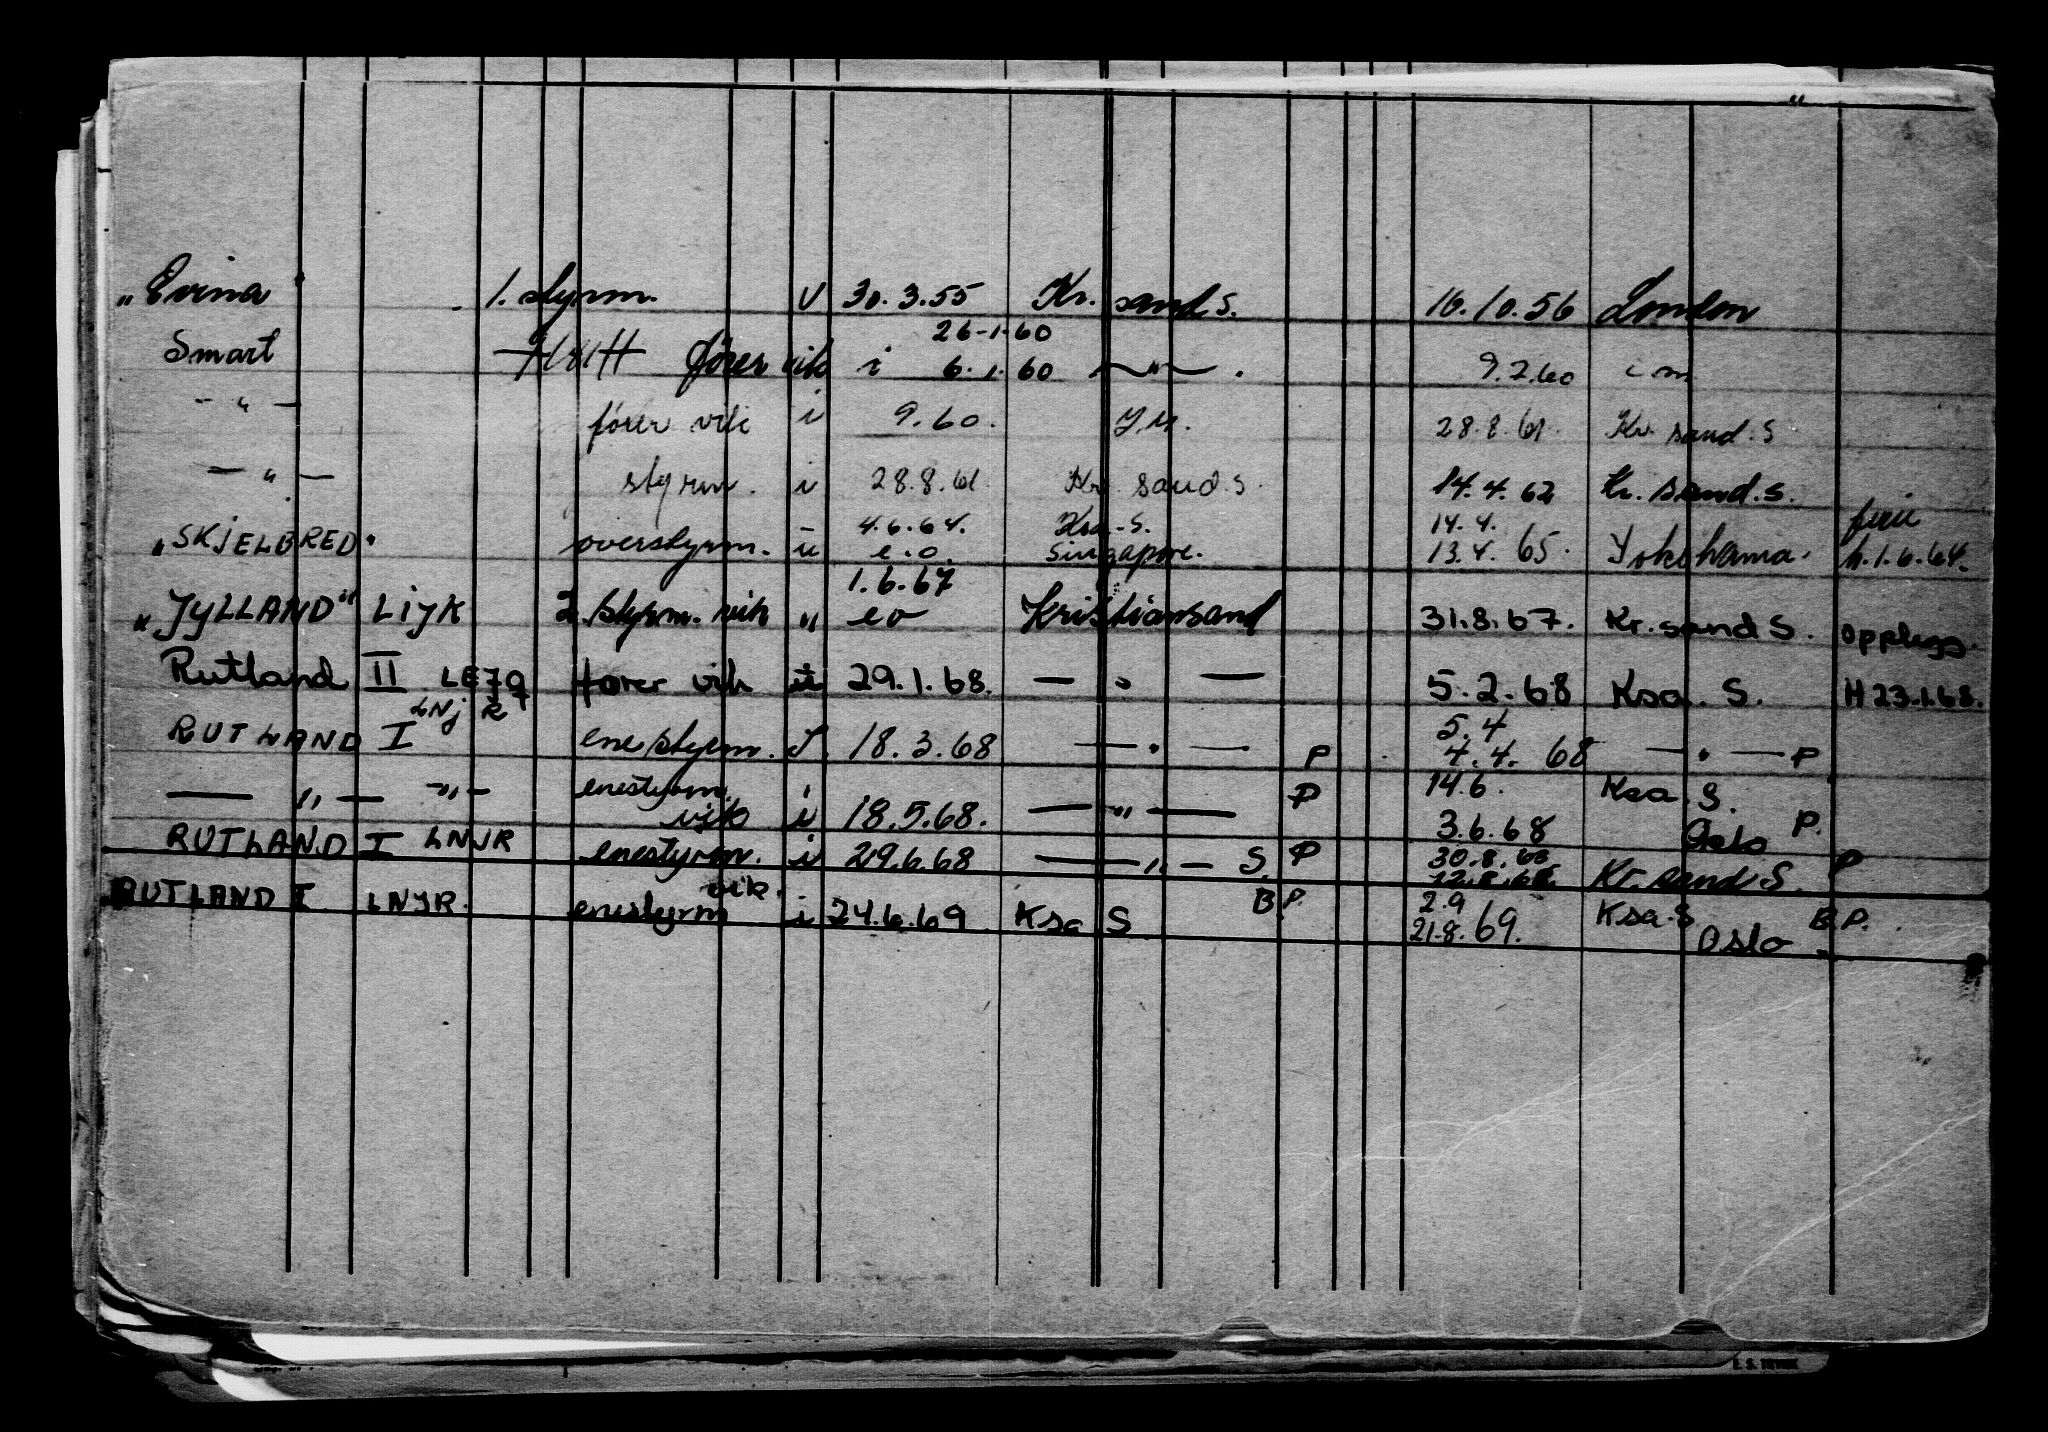 "Evina" 1. styrm. v 30.3.55 Kr. sand S. 16.10.56 London
26-1-60
Smart fører vik i 6.1.60 — " — . 9.2.60 i m
- " - fører vik i 9.60. 28.8.61. Kr. sand. S
— " — styrm. i 28.8.61. Kr. sand. S. 14.4.62 Kr. sand. S.
4.6.64. Ksa. S. 14.4. ferie
"SKJELBRED" overstyrm. u e.o. Singapore. 13.4.65. Yokohama. h.1.6.64.
1.6.67
"JYLLAND" LIJK 2 styrm. vik " eo Kristiansand 31.8.67. Kr. sand S. opplegg.
Rutland II LE7Q Fører vik 29.1.68. — " — 5.2.68 Ksa. S. H 23.1.68.
LNJR 5.4
RUTLAND I ene styrm. 18.3.68 — " — P 4.4.68 — " — P
— " — - " - enestyrm. P 14.6. Ksa. S.
vik i 18.5.68. — " — 3.6.68 Oslo P.
RUTLAND I LNJR enestyrm. i 29.6.68 — " — S. P 30.8.68 Kr. sand S. P
vik. B P. 2.9 Ksa. S B.P.
RUTLAND I LNJR. enestyrm i 24.6.69 Ksa S 21.8.69. Oslo